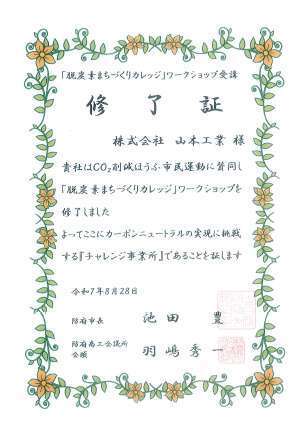 「脱炭素まちづくりカレッジ」ワークショップ受講
修了証
株式会社 山本工業 様
貴社はCO₂削減ほうふ市民運動に賛同し
「脱炭素まちづくりカレッジ」ワークショップを
修了しました
よってここにカーボンニュートラルの実現に挑戦
する『チャレンジ事業所』であることを証します
令和7年8月28日
防府市長 池田 豊
防府商工会議所
会頭 羽嶋秀一